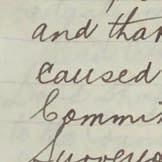 and than
caused
Commi
Survey